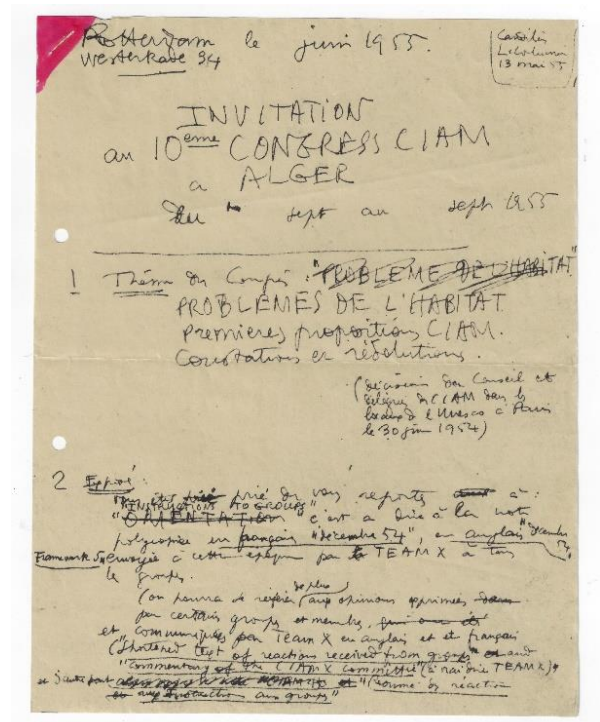 Rotterdam le juin 1955.
Westerkade 34
13 mai 55
INVITATION
au 10eme CONGRESS CIAM
a ALGER
du sept au sept 1955
1 Thème du Congrès : "PROBLEME DE L'HABITAT"
PROBLEMES DE L'HABITAT
premieres propositions CIAM.
Constatations et résolutions.
(décision du Conseil et
délégués du CIAM dans les
locaux de l'Unesco à Paris
le 30 juin 1954)
2 Exposé :
Vous êtes prié de vous reporter à :
"INSTRUCTIONS TO GROUPS"
"ORIENTATION" c'est a dire à la note
polycopiée en français "decembre 54", en anglais "december 54",
Framework 5, envoyée à cette époque par le TEAM X à tous
les groupes.
de plus
(on pourra se référer aux opinions exprimées dans
par certains groups et membres,
et communiquées par Team X en anglais et et français
("Shortened text of reactions received from groups" and
"commentary of the CIAM X committee" (c'est à dire TEAM X)"
et d'autre part et "(résumé des reaction
aux groups"